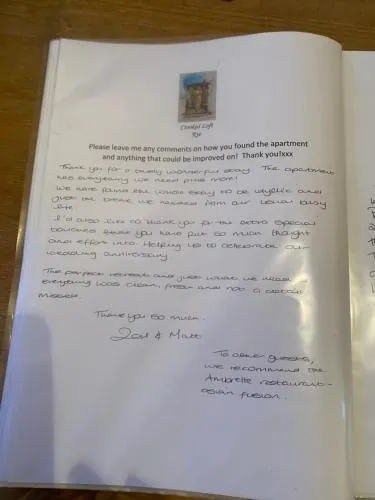 Crooked Loft
Rye
Please leave me any comments on how you found the apartment
and anything that could be improved on! Thank you!xxx
Thank you for a lovely wonderful stay. The apartment
has everything we need plus more!
We have found the whole stay to be idyllic and
just the break we needed from our usual busy
life.
I'd also like to thank you for the extra special
touches that you have put so much thought
and effort into. Helping us to celebrate our
wedding anniversary
The perfect retreat and just what we need
everything was clean, fresh and not a detail
missed.
Thank you so much.
& Matt
To other guests,
we recommend the
Ambrette restaurant -
asian fusion.